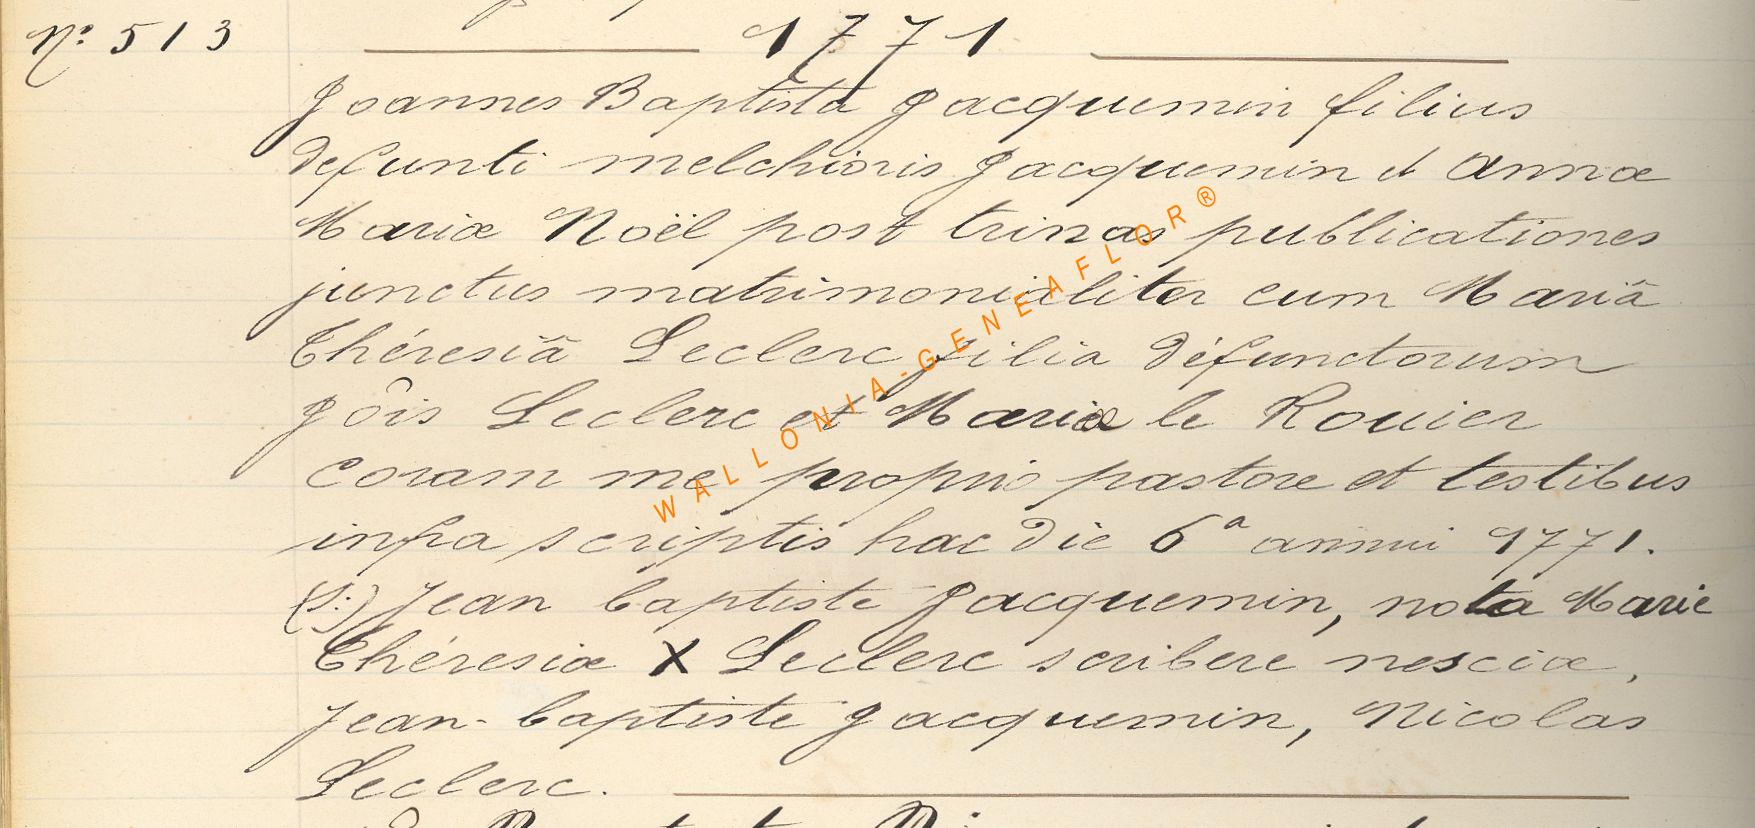 N° 513
1771
Joannes Baptista Jacquemin filius
defunti melchioris Jacquemin et annæ
Mariæ Noël post trinas publicationes
junctus matrimonialiter cum Mariâ
Théresiâ Leclerc filia défunctorum
Jôis Leclerc et Mariæ le Rouier
coram me proprio pastore et testibus
infra scriptis hac die 6ª annui 1771.
(S:) Jean baptiste Jacquemin, nota Marie
Théresiæ X Leclerc scribere nesciæ,
Jean-baptiste Jacquemin, Nicolas
Leclerc.
WALLONIA-GENEAFLOR®